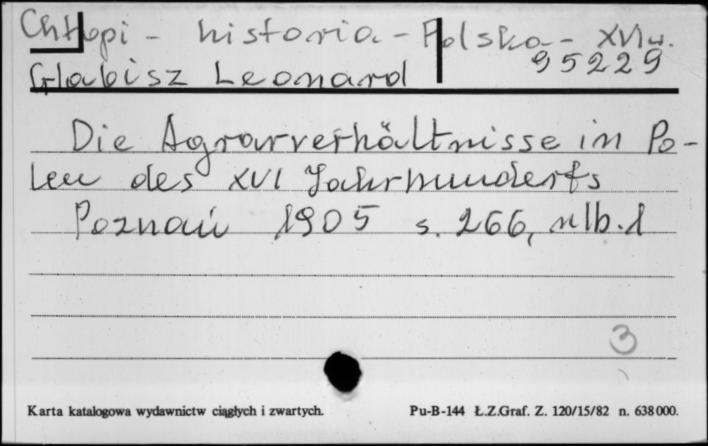 Chłopi - historia - Polska - XVI w.
95229
Glabisz Leonard
Die Agrarverhältnisse in Po-
len des XVI Jahrhunderts
Poznań 1905 s. 266, nlb. 1
3
Karta katalogowa wydawnictw ciągłych i zwartych. Pu-B-144 Ł.Z.Graf. Z. 120/15/82 n. 638000.